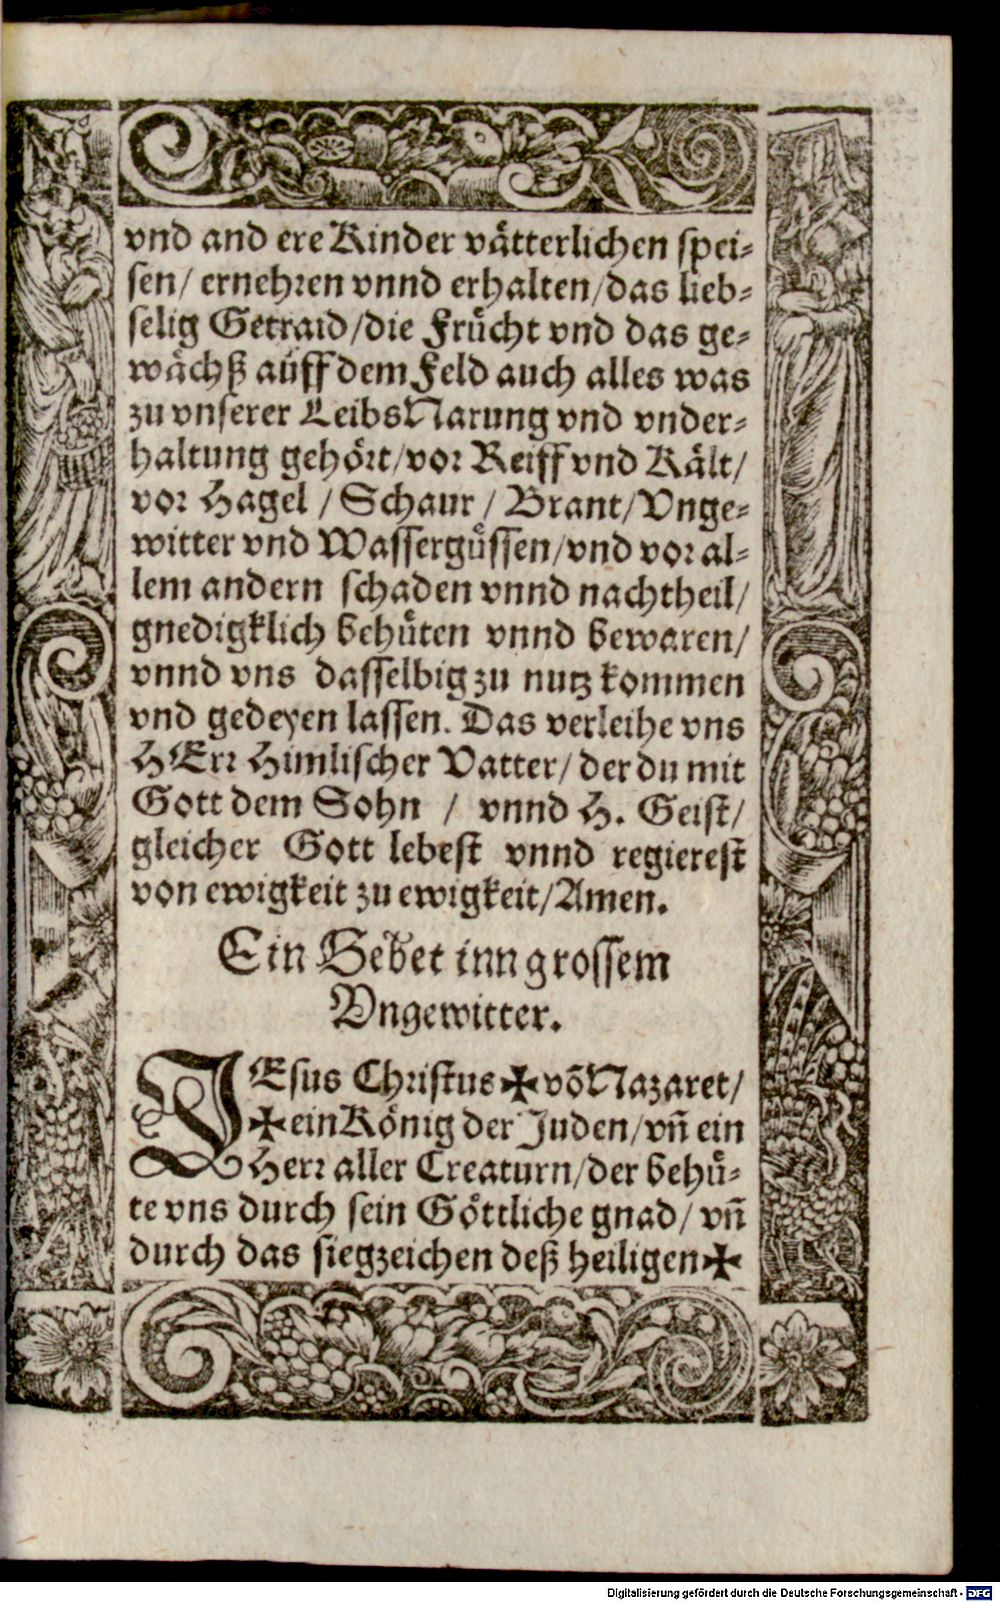 vnd and ere Kinder vätterlichen spei-
sen/ ernehren vnnd erhalten/das lieb-
selig Getraid/die Frücht vnd das ge-
wächß auff dem Feld auch alles was
zu vnserer Leibs Narung vnd vnder-
haltung gehört/vor Reiff vnd Kält/
vor Hagel / Schaur / Brant/Vnge-
witter vnd Wassergüssen/vnd vor al-
lem andern schaden vnnd nachtheil/
gnedigklich behüten vnnd bewaren/
vnnd vns dasselbig zu nutz kommen
vnd gedeyen lassen. Das verleihe vns
HErr Himlischer Vatter/ der du mit
Gott dem Sohn / vnnd H. Geist/
gleicher Gott lebest vnnd regierest
von ewigkeit zu ewigkeit/Amen.
Ein Gebet inn grossem
Vngewitter.
JEsus Christus ✠ võ Nazaret/
✠ ein König der Juden/vñ ein
Herr aller Creaturn/der behü-
te vns durch sein Göttliche gnad/ vñ
durch das siegzeichen deß heiligen ✠
Digitalisierung gefördert durch die Deutsche Forschungsgemeinschaft - DFG